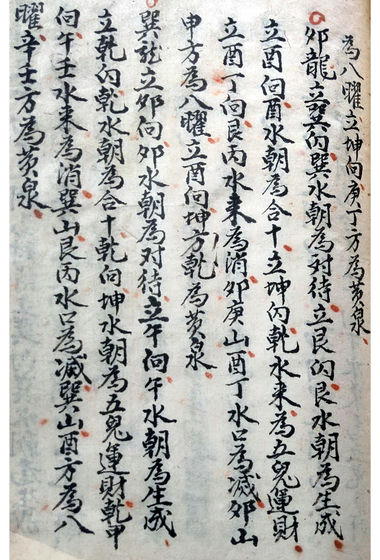 為八曜立坤向庚丁方為黃泉
卯龍立巽向巽水朝為対待立艮向艮水朝為生成
立酉向酉水朝為合十立坤向乾水来為五兒運財
立酉丁向艮丙水来為消卯庚山酉丁水口為滅卯山
申方為八曜立酉向坤方乾為黃泉
巽龍立卯向卯水朝為対待立午向午水朝為生成
立乾向乾水朝為合十乾向坤水朝為五兒運財乾甲
向午壬水来為消巽山艮丙水口為滅巽山酉方為八
曜辛士方為黃泉